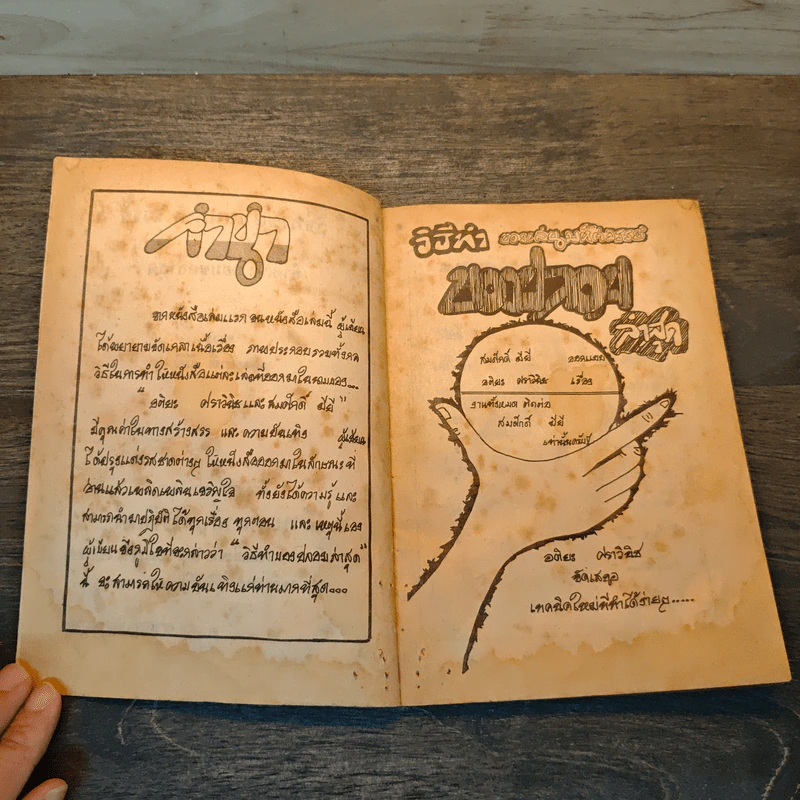 คำนำ
จากหนังสือเล่มแรก จนหนังสือเล่มนี้ ผู้เขียน
ได้พยายามขัดเกลาเนื้อเรื่อง ภาพประกอบ รวมทั้งกล
วิธีในการทำให้หนังสือแต่ละเล่มที่ออกมาในนามของ...
" อติยะ ศราวินิช และ สมศักดิ์ มียี "
มีคุณค่าในทางสร้างสรร และ ความบันเทิง ผู้เขียน
ได้ปรุงแต่งรสชาดต่างๆ ให้หนังสือออกมาในลักษณะที่
อ่านแล้วเพลิดเพลินเจริญใจ ทั้งยังได้ความรู้และ
สามารถนำมาปฏิบัติได้ทุกเรื่อง ทุกตอน และ เหตุนี้เอง
ผู้เขียนจึงภูมิใจที่จะกล่าวว่า " วิธีทำของปลอมล่าสุด "
นี้ จะสามารถให้ความบันเทิงแก่ท่านมากที่สุด...
วิธีทำ
ล่าสุด
สมศักดิ์ มียี ออกแบบ
อติยะ ศราวินิช เรื่อง
งานทั้งหมด ติดต่อ
สมศักดิ์ มียี
เท่านั้นครับ
อติยะ ศราวินิช
จัดเสนอ
เทคนิคใหม่ที่ทำได้ง่ายๆ.....